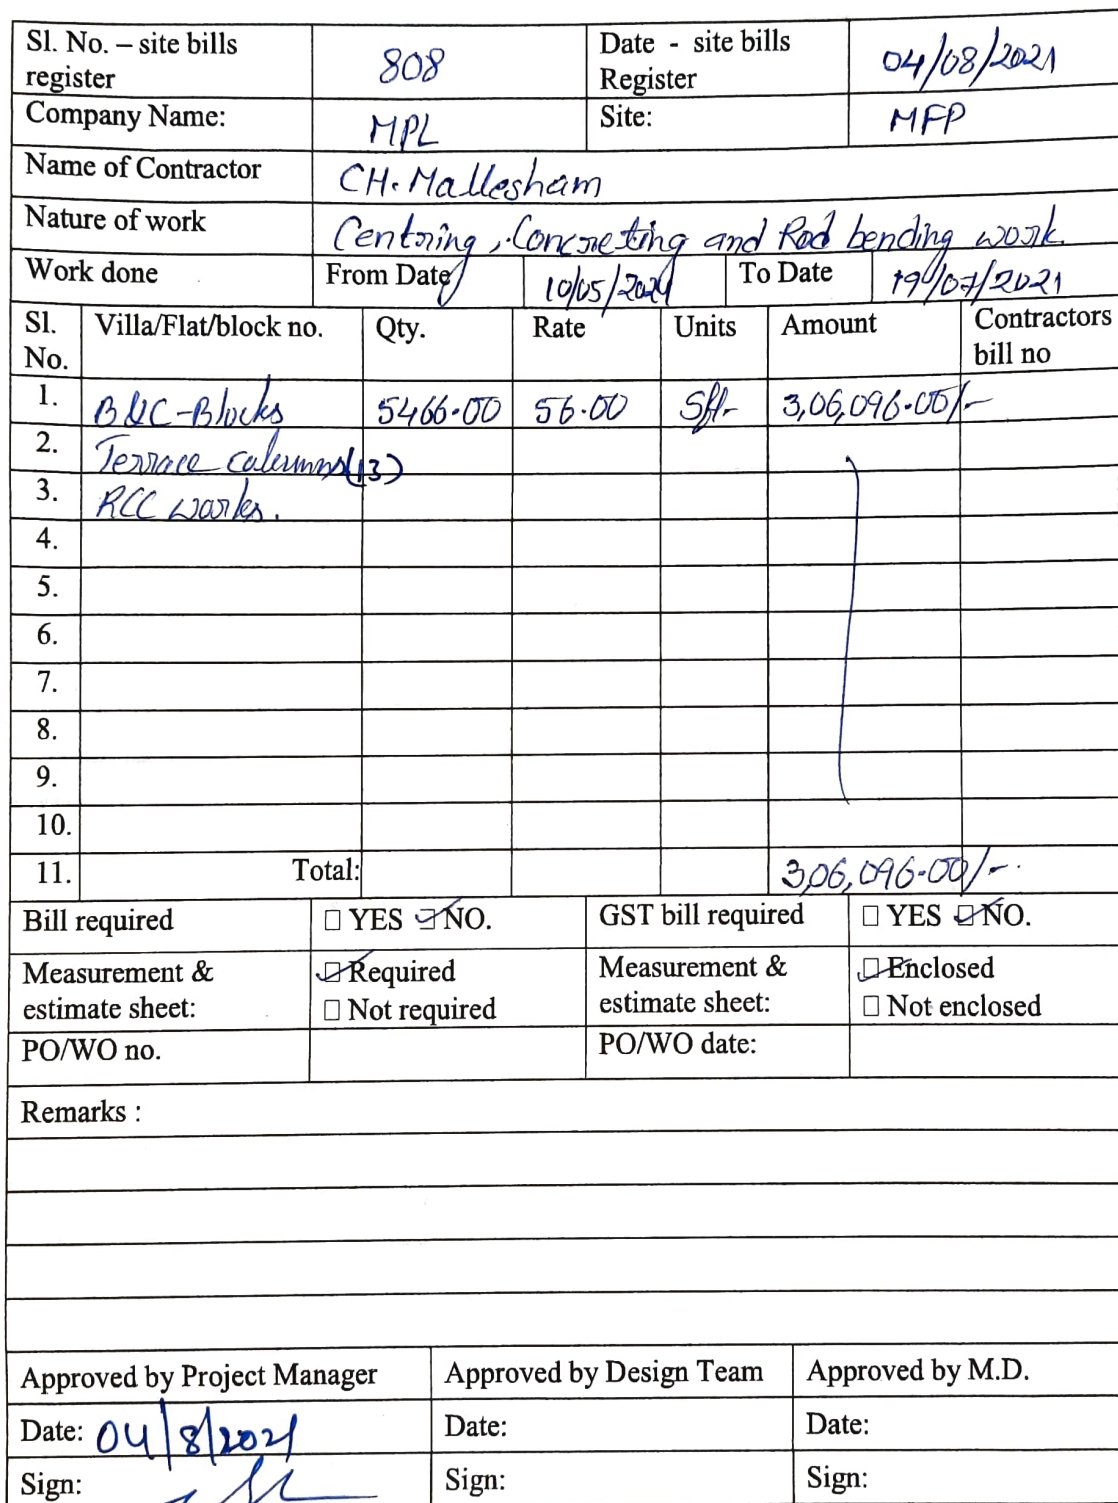 Sl. No. – site bills register 808 Date - site bills Register 04/08/2021
Company Name: MPL Site: MFP
Name of Contractor CH. Mallesham
Nature of work Centring, Concreting and Rod bending work.
Work done From Date 10/05/2021 To Date 19/07/2021
Sl. No. Villa/Flat/block no. Qty. Rate Units Amount Contractors bill no
1. B&C-Blocks 5466.00 56.00 Sft- 3,06,096.00/-
2. Terrace calumns(13)
3. RCC works.
4.
5.
6.
7.
8.
9.
10.
11. Total: 3,06,096.00/-
Bill required □ YES ☑ NO. GST bill required □ YES ☑ NO.
Measurement & estimate sheet: ☑ Required □ Not required Measurement & estimate sheet: ☑ Enclosed □ Not enclosed
PO/WO no. PO/WO date:
Remarks :
Approved by Project Manager Approved by Design Team Approved by M.D.
Date: 04/8/2021 Date: Date:
Sign: Sign: Sign: